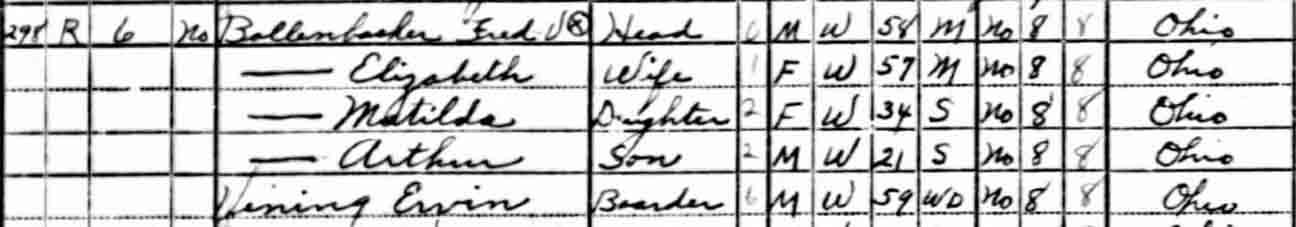 298 R 6 no Bollenbacher Fred J ⊗ Head 0 M W 58 M no 8 8 Ohio
— Elizabeth Wife 1 F W 57 M no 8 8 Ohio
— Matilda Daughter 2 F W 34 S no 8 8 Ohio
— Arthur Son 2 M W 21 S no 8 8 Ohio
Vining Ervin Boarder 6 M W 59 WD no 8 8 Ohio